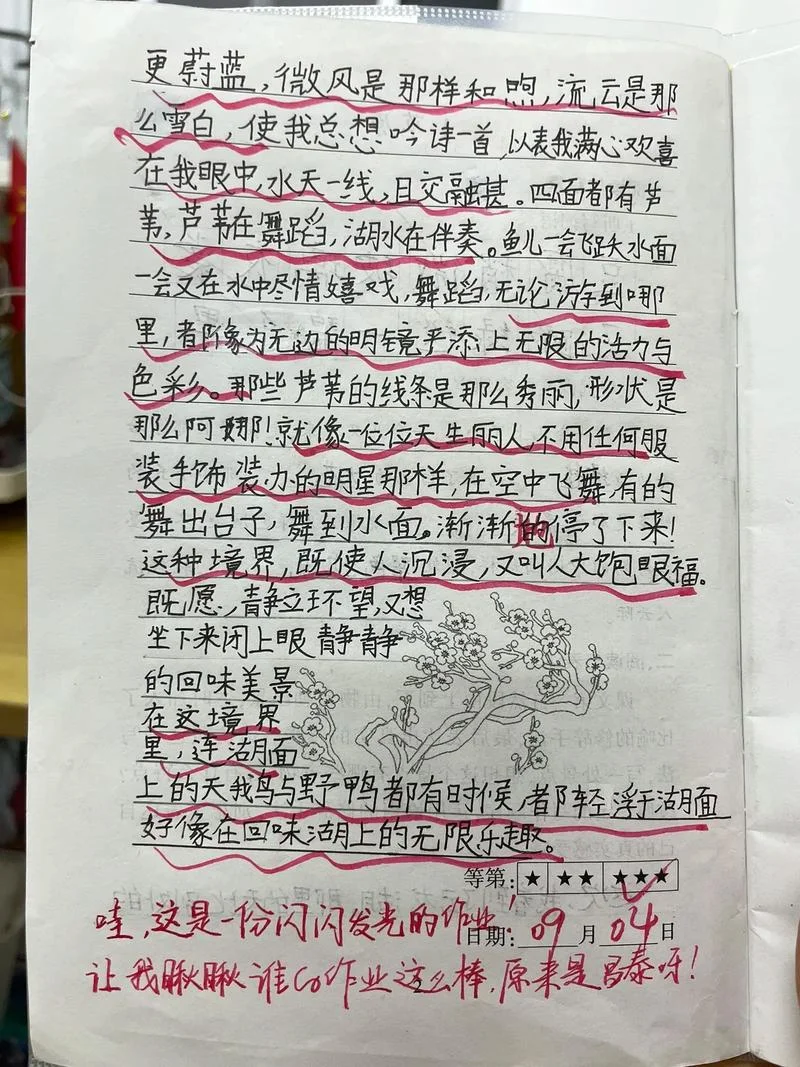 更蔚蓝，微风是那样和煦，流云是那
么雪白，使我总想吟诗一首，以表我满心欢喜
在我眼中，水天一线，且交融甚。四面都有芦
苇，芦苇在舞蹈，湖水在伴奏。鱼儿一会飞跃水面
一会又在水中尽情嬉戏，舞蹈，无论游到哪
里，都像为无边的明镜乎添上无限的活力与
色彩。那些芦苇的线条是那么秀丽，形状是
那么阿娜！就像一位位天生丽人，不用任何服
装手饰装办的明星那样，在空中飞舞，有的
舞出台子，舞到水面。渐渐的停了下来！
地
这种境界，既使人沉浸，又叫人大饱眼福。
既愿，静立环望，又想
坐下来闭上眼静静
的回味美景
在这境界
里，连湖面
上的天我鸟与野鸭都有时候，都轻浮于湖面
好像在回味湖上的无限乐趣。
等第： ★ ★★ ★★★
哇，这是一份闪闪发光的作业，
日期：09月04日
让我瞅瞅谁の作业这么棒，原来是昌泰呀！
2